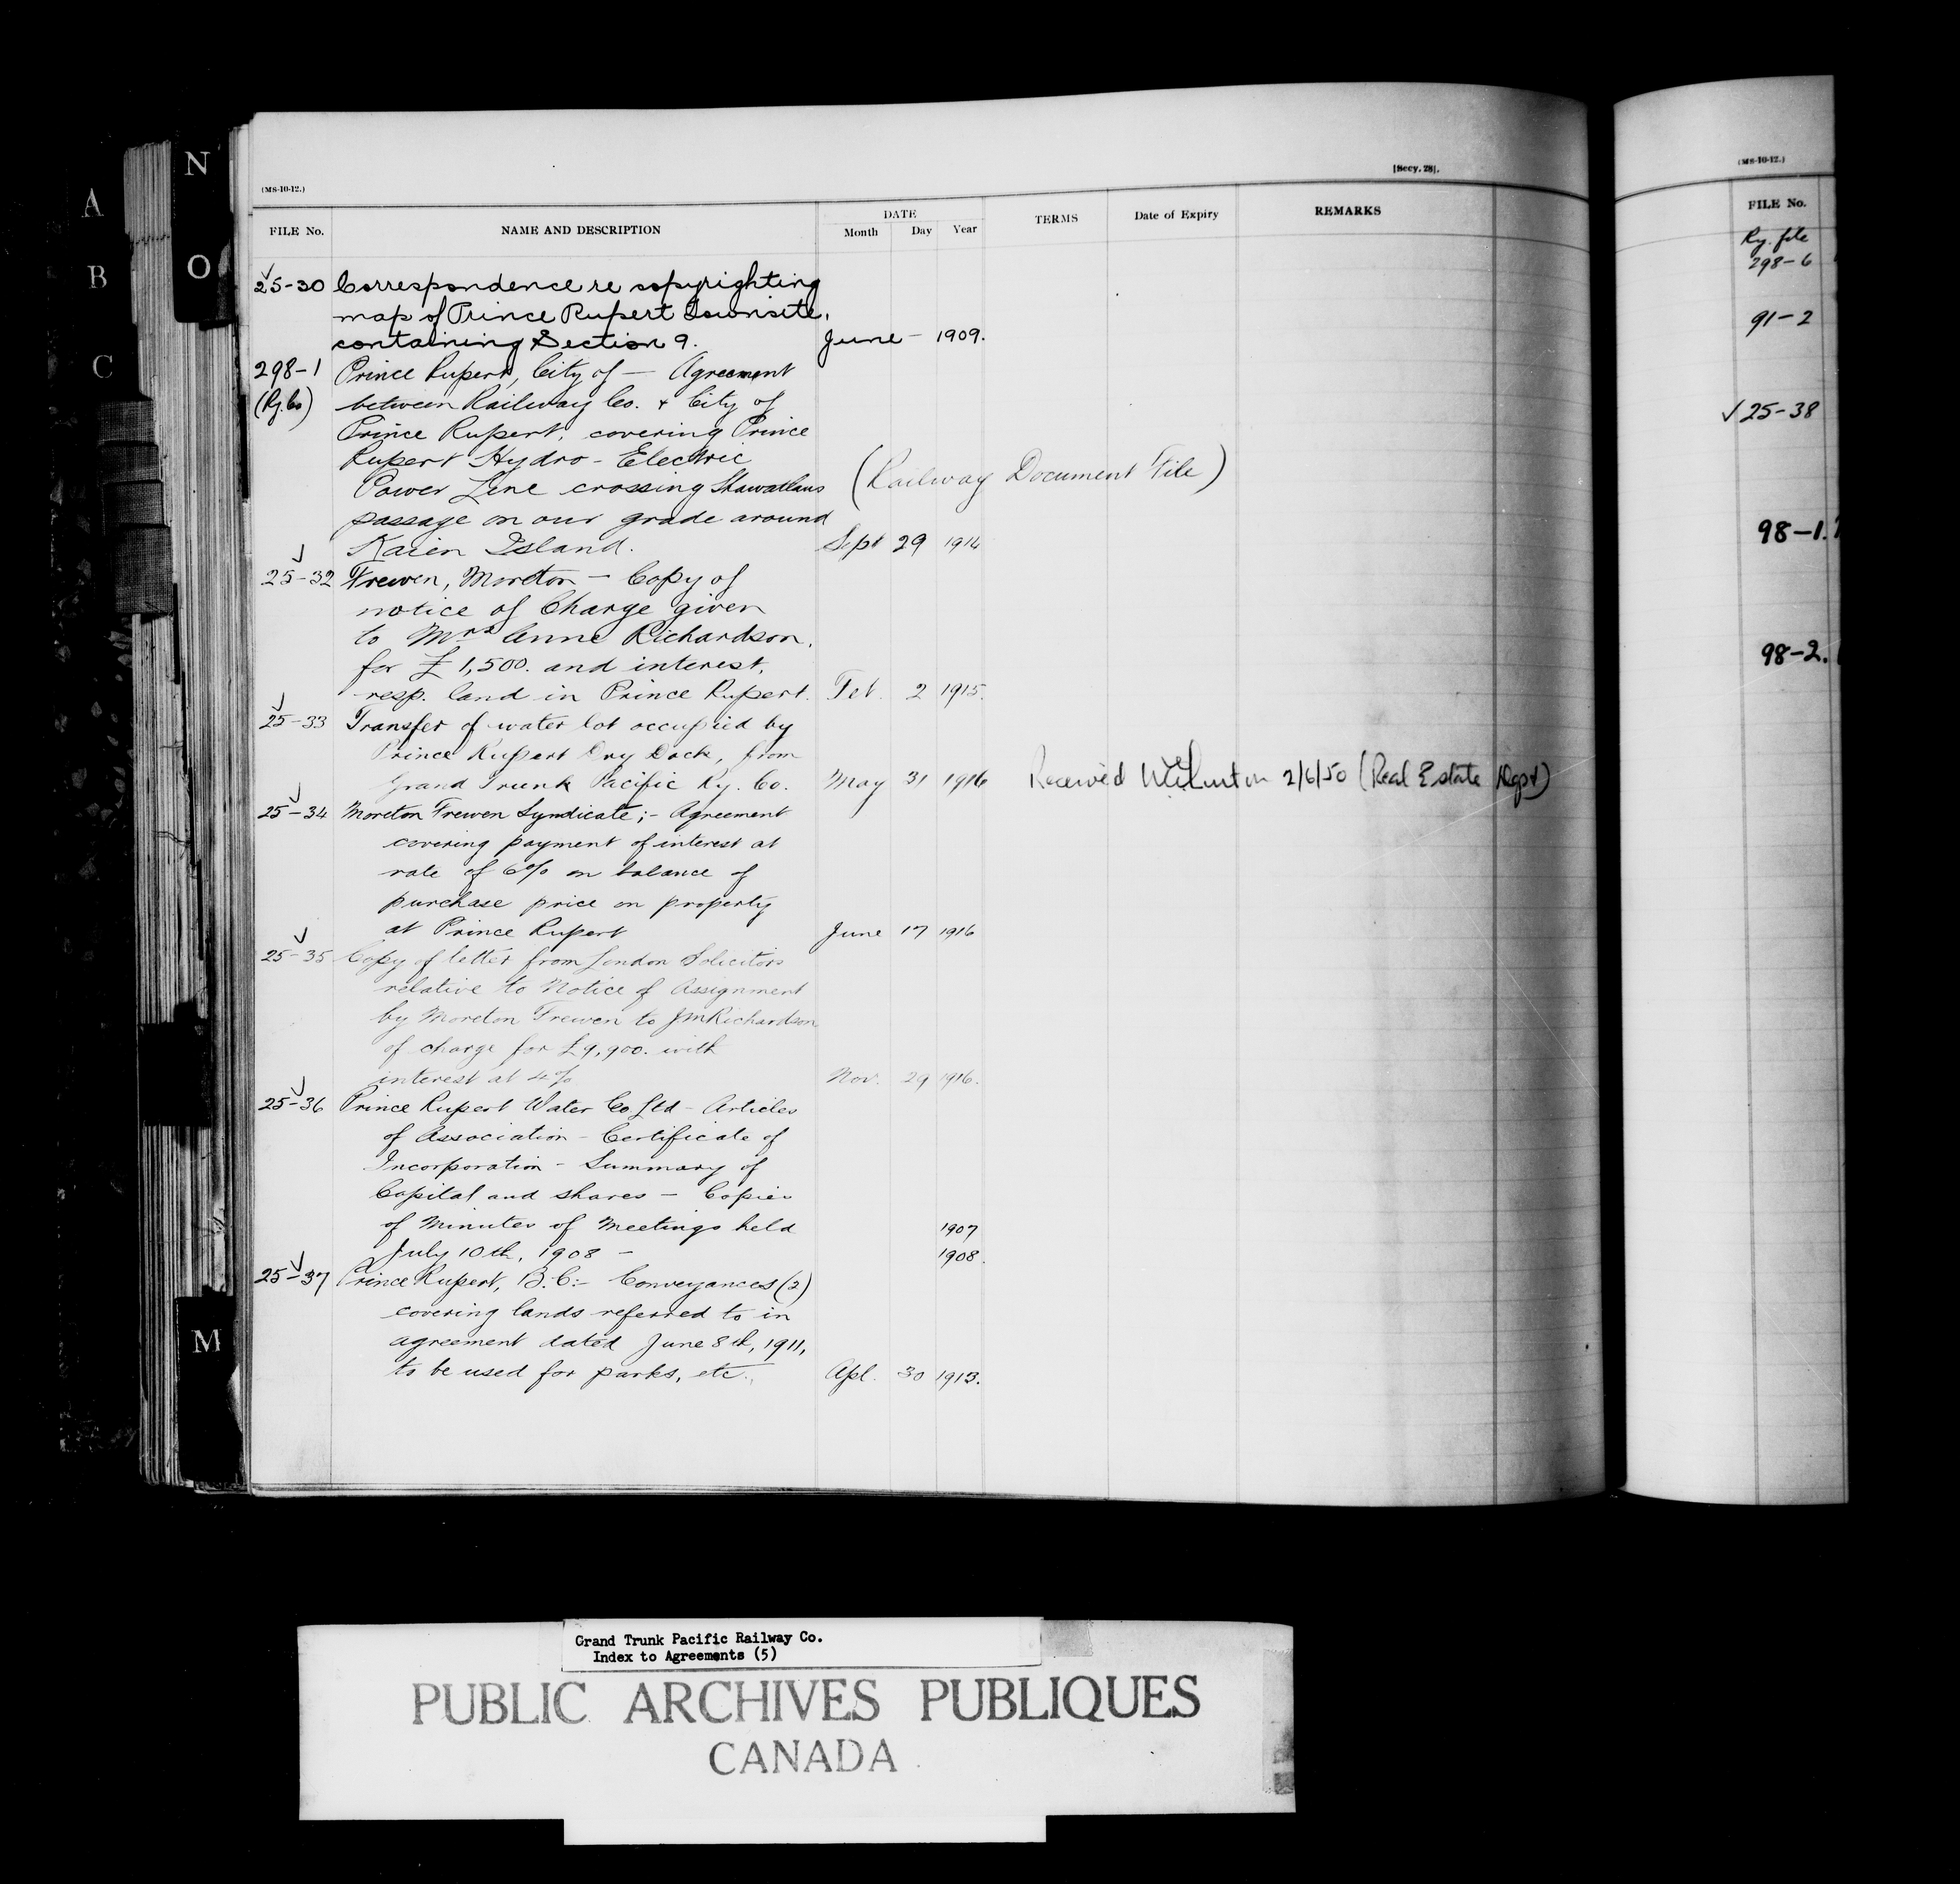 A
B
C
N
O
M
(MS-10-12.)
[Secy. 28].
FILE No.
NAME AND DESCRIPTION
DATE
Month Day Year
TERMS
Date of Expiry
REMARKS
✓
25-30 Correspondence re copyrighting
map of Prince Rupert Townsite,
containing Section 9. June - 1909.
298-1 Prince Rupert, City of — Agreement
(Ry. Co) between Railway Co. & City of
Prince Rupert, covering Prince
Rupert Hydro-Electric
Power Line crossing Shawatlans (Railway Document File)
passage on our grade around
Kaien Island. Sept 29 1914
✓
25-32 Frewen, Moreton — Copy of
notice of Charge given
to Mrs Anne Richardson,
for £1,500. and interest,
resp. land in Prince Rupert. Feb. 2 1915.
✓
25-33 Transfer of water lot occupied by
Prince Rupert Dry Dock, from
Grand Trunk Pacific Ry. Co. May 31 1916 Received 2/6/50 (Real Estate Dept)
✓
25-34 Moreton Frewen Syndicate;- Agreement
covering payment of interest at
rate of 6% on balance of
purchase price on property
at Prince Rupert June 17 1916
✓
25-35 Copy of letter from London Solicitors
relative to Notice of Assignment
by Moreton Frewen to JM Richardson
of charge for £9,900. with
interest at 4% Nov. 29 1916.
✓
25-36 Prince Rupert Water Co. Ltd - Articles
of Association - Certificate of
Incorporation - Summary of
Capital and shares — Copies
of Minutes of Meetings held 1907
July 10th, 1908 - 1908.
✓
25-37 Prince Rupert, B.C:- Conveyances (2)
covering lands referred to in
agreement dated June 8th, 1911,
to be used for parks, etc. Apl. 30 1913.
(MS-10-12.)
FILE No.
Ry. file
298-6
91-2
✓25-38
98-1.
98-2.
Grand Trunk Pacific Railway Co.
Index to Agreements (5)
PUBLIC ARCHIVES PUBLIQUES
CANADA